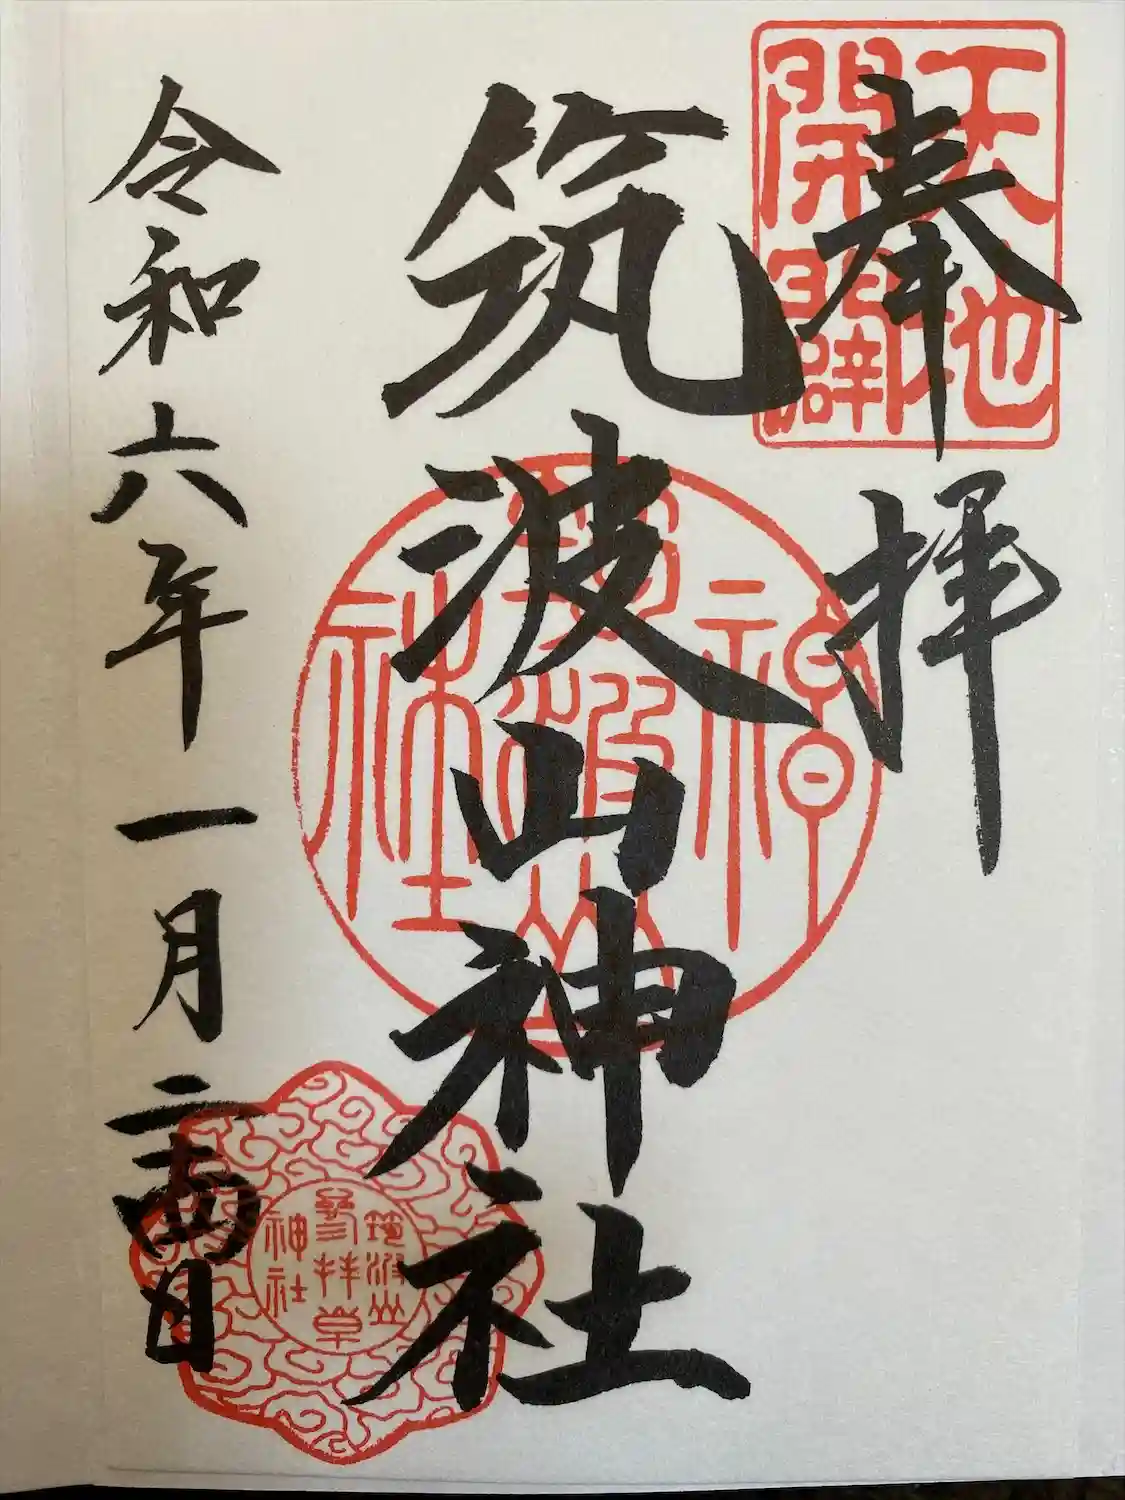 奉拝
天地
開闢
筑波山神社
筑波山神社
令和六年一月二十四日
筑波山
參拝章
神社